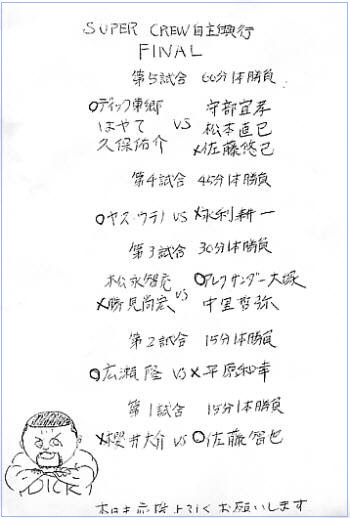 SUPER CREW自主興行
FINAL
第5試合 60分1本勝負
○ディック東郷 守部宣孝
はやて VS 松本直巳
久保佑介 ×佐藤悠己
第4試合 45分1本勝負
○ヤス・ウラノ VS ×永利耕一
第3試合 30分1本勝負
松永智充 ○アレクサンダー大塚
VS
×勝見尚宏 中里哲弥
第2試合 15分1本勝負
○広瀬隆 VS ×平原和幸
第1試合 15分1本勝負
×櫻井大介 VS ○佐藤智也
DICK
本日も応援よろしくお願いします